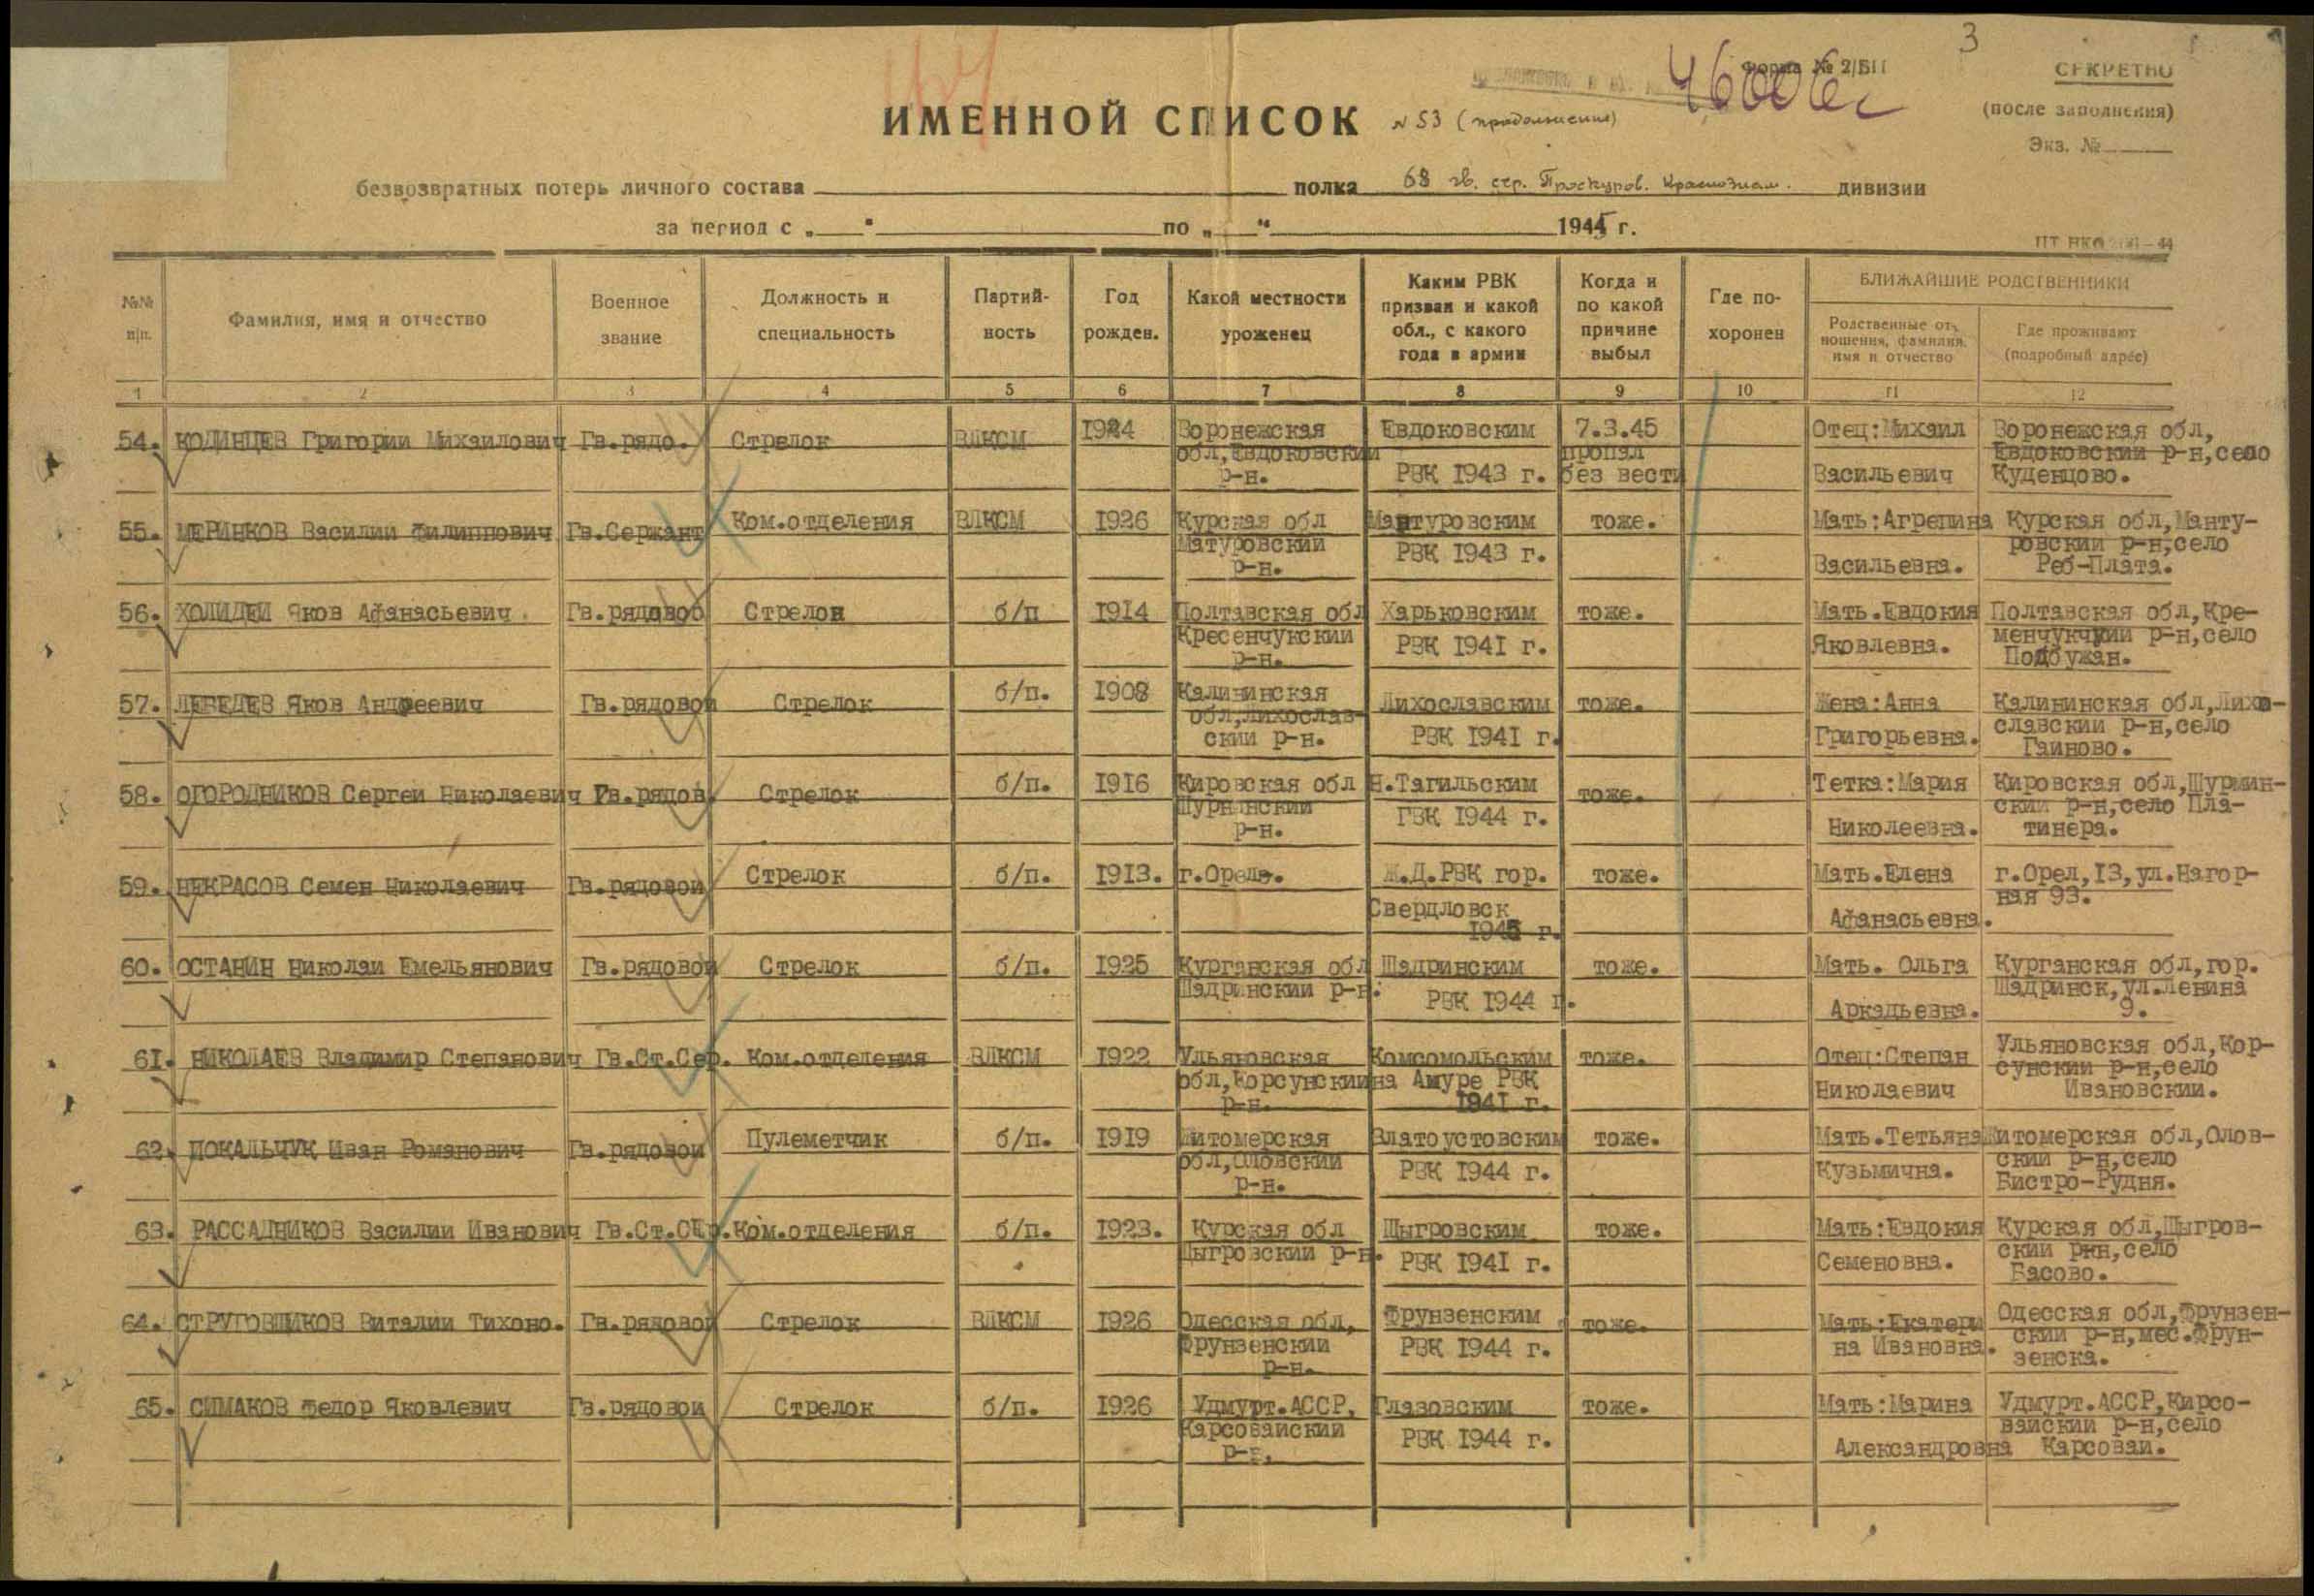 3
Форма № 2/БП
СЕКРЕТНО
46006с
(после заполнения)
Экз. №
ИМЕННОЙ СПИСОК N 53 (продолжение)
безвозвратных потерь личного состава полка 68 гв. стр. Проскуров. Краснознам. дивизии
за период с „ " по „ " 1945 г.
№№ п/п.
Фамилия, имя и отчество
Военное звание
Должность и специальность
Партий-ность
Год рожден.
Какой местности уроженец
Каким РВК призван и какой обл., с какого года в армии
Когда и по какой причине выбыл
Где по-хоронен
БЛИЖАЙШИЕ РОДСТВЕННИКИ
Родственные от-ношения, фамилия, имя и отчество
Где проживают (подробный адрес)
1 2 3 4 5 6 7 8 9 10 11 12
54. КОДИНЦЕВ Григории Михаилович Гв.рядо. Стрелок ВЛКСМ 1924 Воронежская Евдоковским 7.3.45 Отец:Михаил Воронежская обл,
обл,Евдоковскии пропал Евдоковскии р-н,село
р-н. РВК 1943 г. без вести Васильевич Куденцово.
55. МЕРИНКОВ Василии Филиппович Гв.Сержант Ком.отделения ВЛКСМ 1926 Курская обл Мантуровским тоже. Мать:Агрепина Курская обл,Манту-
Матуровскии РВК 1943 г. ровскии р-н,село
р-н. Васильевна. Реб-Плата.
56. ХОЛИДЕИ Яков Афанасьевич. Гв.рядовои Стрелок б/п 1914 Полтавская обл Харьковским тоже. Мать.Евдокия Полтавская обл,Кре-
Кресенчукскии РВК 1941 г. Яковлевна. менчукчкии р-н,село
р-н. Подбужан.
57. ЛЕБЕДЕВ Яков Андреевич Гв.рядовои Стрелок б/п. 1908 Калининская Лихославским тоже. Жена:Анна Калининская обл,Лихо-
обл,Лихослав- славскии р-н,село
скии р-н. РВК 1941 г. Григорьевна. Гаиново.
58. ОГОРОДНИКОВ Сергеи Николаевич Гв.рядов. Стрелок б/п. 1916 Кировская обл Н.Тагильским тоже. Тетка:Мария Кировская обл,Шурмин-
Шурнинскии ГВК 1944 г. скии р-н,село Пла-
р-н. Николеевна. тинера.
59. НЕКРАСОВ Семен Николаевич Гв.рядовои Стрелок б/п. 1913. г.Орел. Ж.Д.РВК гор. тоже. Мать.Елена г.Орел,13,ул.Нагор-
Свердловск ная 93.
1945 г. Афанасьевна.
60. ОСТАНИН Николаи Емельянович Гв.рядовои Стрелок б/п. 1925 Курганская обл Шадринским тоже. Мать. Ольга Курганская обл,гор.
Шадринскии р-н. РВК 1944 г. Шадринск,ул.Ленина
Аркадьевна. 9.
61. НИКОЛАЕВ Владимир Степанович Гв.Ст.Сер. Ком.отделения ВЛКСМ 1922 Ульяновская Комсомольским тоже. Отец:Степан Ульяновская обл,Кор-
обл,Корсунскии на Амуре РВК сунскии р-н,село
р-н. 1941 г. Николаевич Ивановскии.
62. ПОКАЛЬЧУК Иван Романович Гв.рядовои Пулеметчик б/п. 1919 Житомерская Златоустовским тоже. Мать.Тетьяна Житомерская обл,Олов-
обл,Оловскии РВК 1944 г. Кузьмична. скии р-н,село
р-н. Бистро-Рудня.
63. РАССАДНИКОВ Василии Иванович Гв.Ст.Сер. Ком.отделения б/п. 1923. Курская обл Щыгровским тоже. Мать:Евдокия Курская обл,Щыгров-
Щыгровскии р-н. РВК 1941 г. Семеновна. скии ркн,село
Басово.
64. СТРУГОВЩИКОВ Виталии Тихоно. Гв.рядовои Стрелок ВЛКСМ 1926 Одесская обл, Фрунзенским тоже. Мать:Екатери Одесская обл,Фрунзен-
Фрунзенскии РВК 1944 г. на Ивановна. скии р-н,мес.Фрун-
р-н. зенска.
65. СИМАКОВ Федор Яковлевич Гв.рядовои Стрелок б/п. 1926 Удмурт.АССР, Глазовским тоже. Мать:Марина Удмурт.АССР,Кирсо-
Карсоваискии РВК 1944 г. ваискии р-н,село
р-н. Александровна Карсоваи.